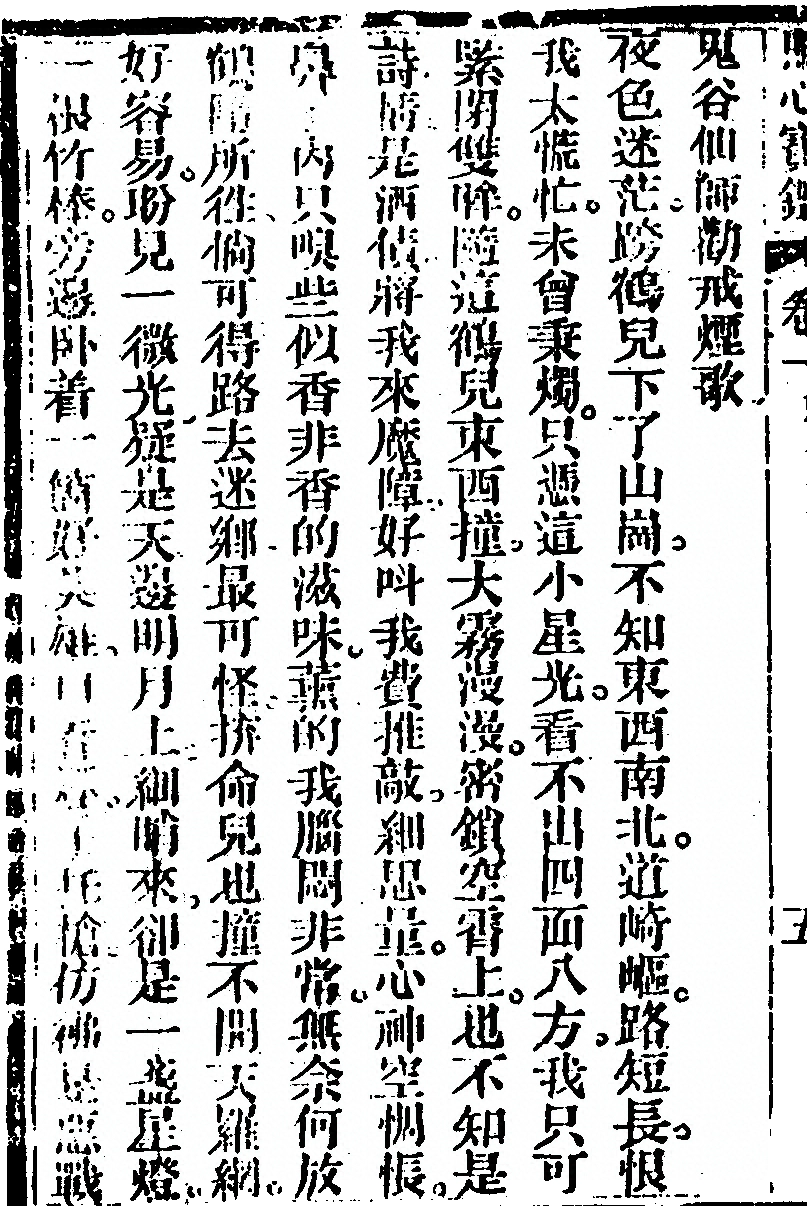 照心寶鑑 卷一 五
鬼谷仙師勸戒煙歌
夜色迷茫。跨鶴兒下了山崗。不知東西南北。道崎嶇。路短長。恨
我太慌忙。未曾秉燭。只憑這小星光。看不出四面八方。我只可
緊閉雙眸。隨這鶴兒東西撞。大霧漫漫。密鎖空霄上。也不知是
詩情是酒債。將我來魔障。好呌我費推敲。細思量。心神空惆悵。
鼻內只嗅些似香非香的滋味。薰的我腦悶非常。無奈何放
鶴隨所往。倘可得路去迷鄉。最可怪。拚命兒也撞不開天羅網。
好容易。盼見一微光。疑是天邊明月上。細睛來。卻是一盞星燈。
一根竹棒。旁邊臥着一箇好英雄。口 槍仿彿是惡戰